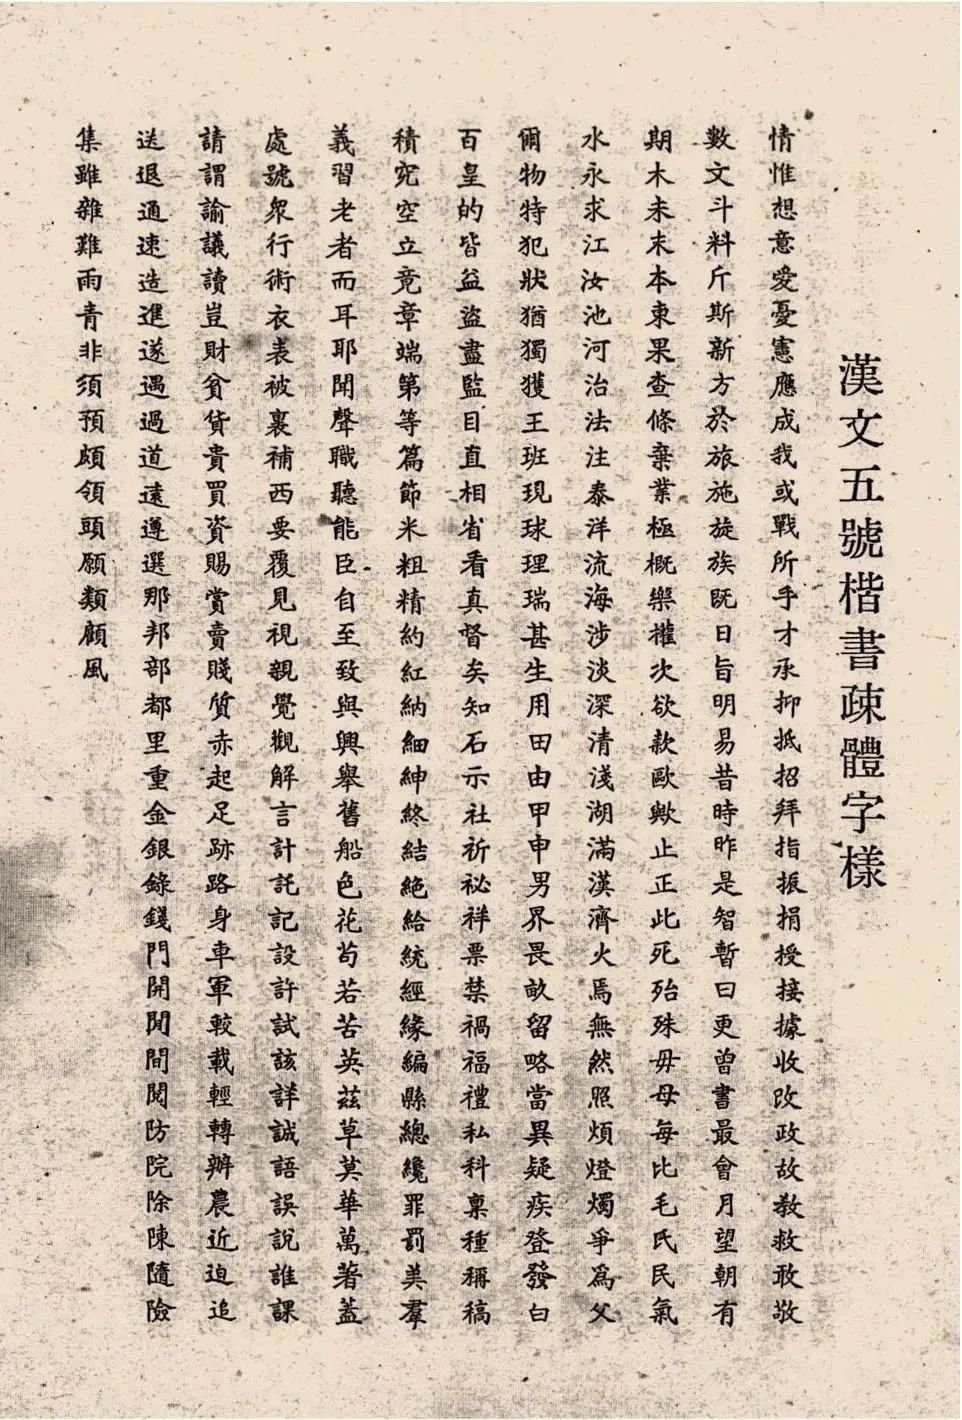 漢文五號楷書疎體字樣
情惟想意愛憂憲應成我或戰所手才承抑抵招拜指振捐授接據收改政故教救敢敬
數文斗料斤斯新方於旅施旋族既日旨明易昔時昨是智暫曰更曾書最會月望朝有
期木未末本東果查條棄業極概樂權次欲款歐歟止正此死殆殊毋母每比毛氏民氣
水永求江汝池河治法注泰洋流海涉淡深清淺湖滿漢濟火焉無然照煩燈燭爭爲父
爾物特犯狀猶獨獲王班現球理瑞甚生用田由甲申男界畏畝留略當異疑疾登發白
百皇的皆益盜盡監目直相省看真督矣知石示社祈祕祥票禁禍福禮私科稟種稱稿
積究空立竟章端第等篇節米粗精約紅納細紳終結絕給統經緣編縣總纔罪罰美羣
義習老者而耳耶聞聲職聽能臣自至致與興舉舊船色花苟若苦英茲草莫華萬著蓋
處號衆行術衣表被裏補西要覆見視親覺觀解言計託記設許試該詳誠語誤說誰課
請謂諭議讀豈財貧貨貴買資賜賞賣賤質赤起足跡路身車軍較載輕轉辦農近迫追
送退通速造進遂遇過道遠遵選那邦部都里重金銀錄錢門開閒間閱防院除陳隨險
集雖雜難雨青非須預頗領頭願類顧風